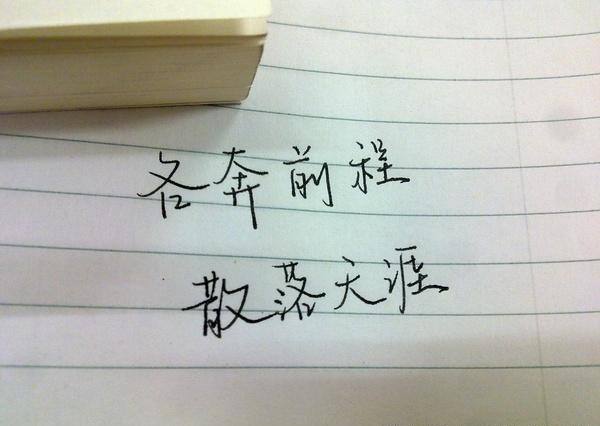 各奔前程
散落天涯